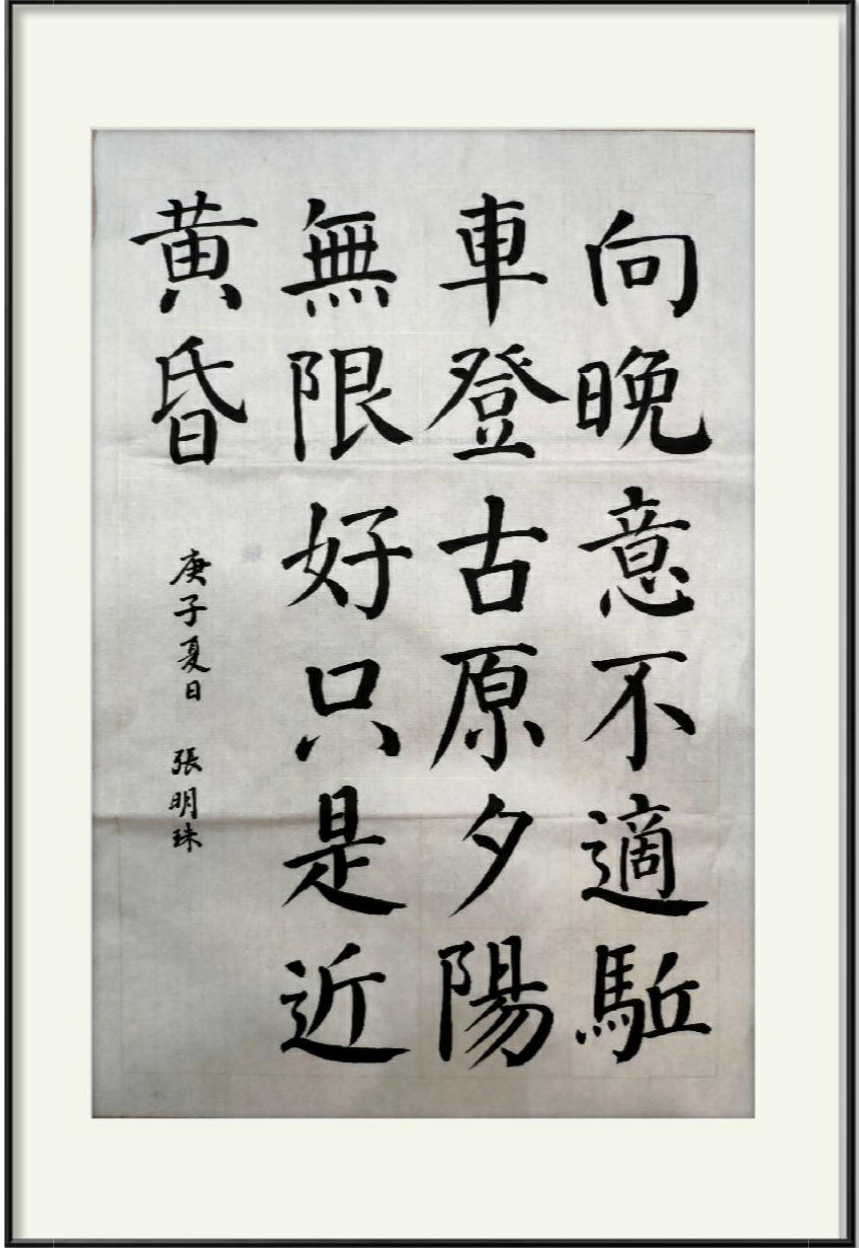 向晚意不適駈
車登古原夕陽
無限好只是近
黄昏
庚子夏日 張明珠